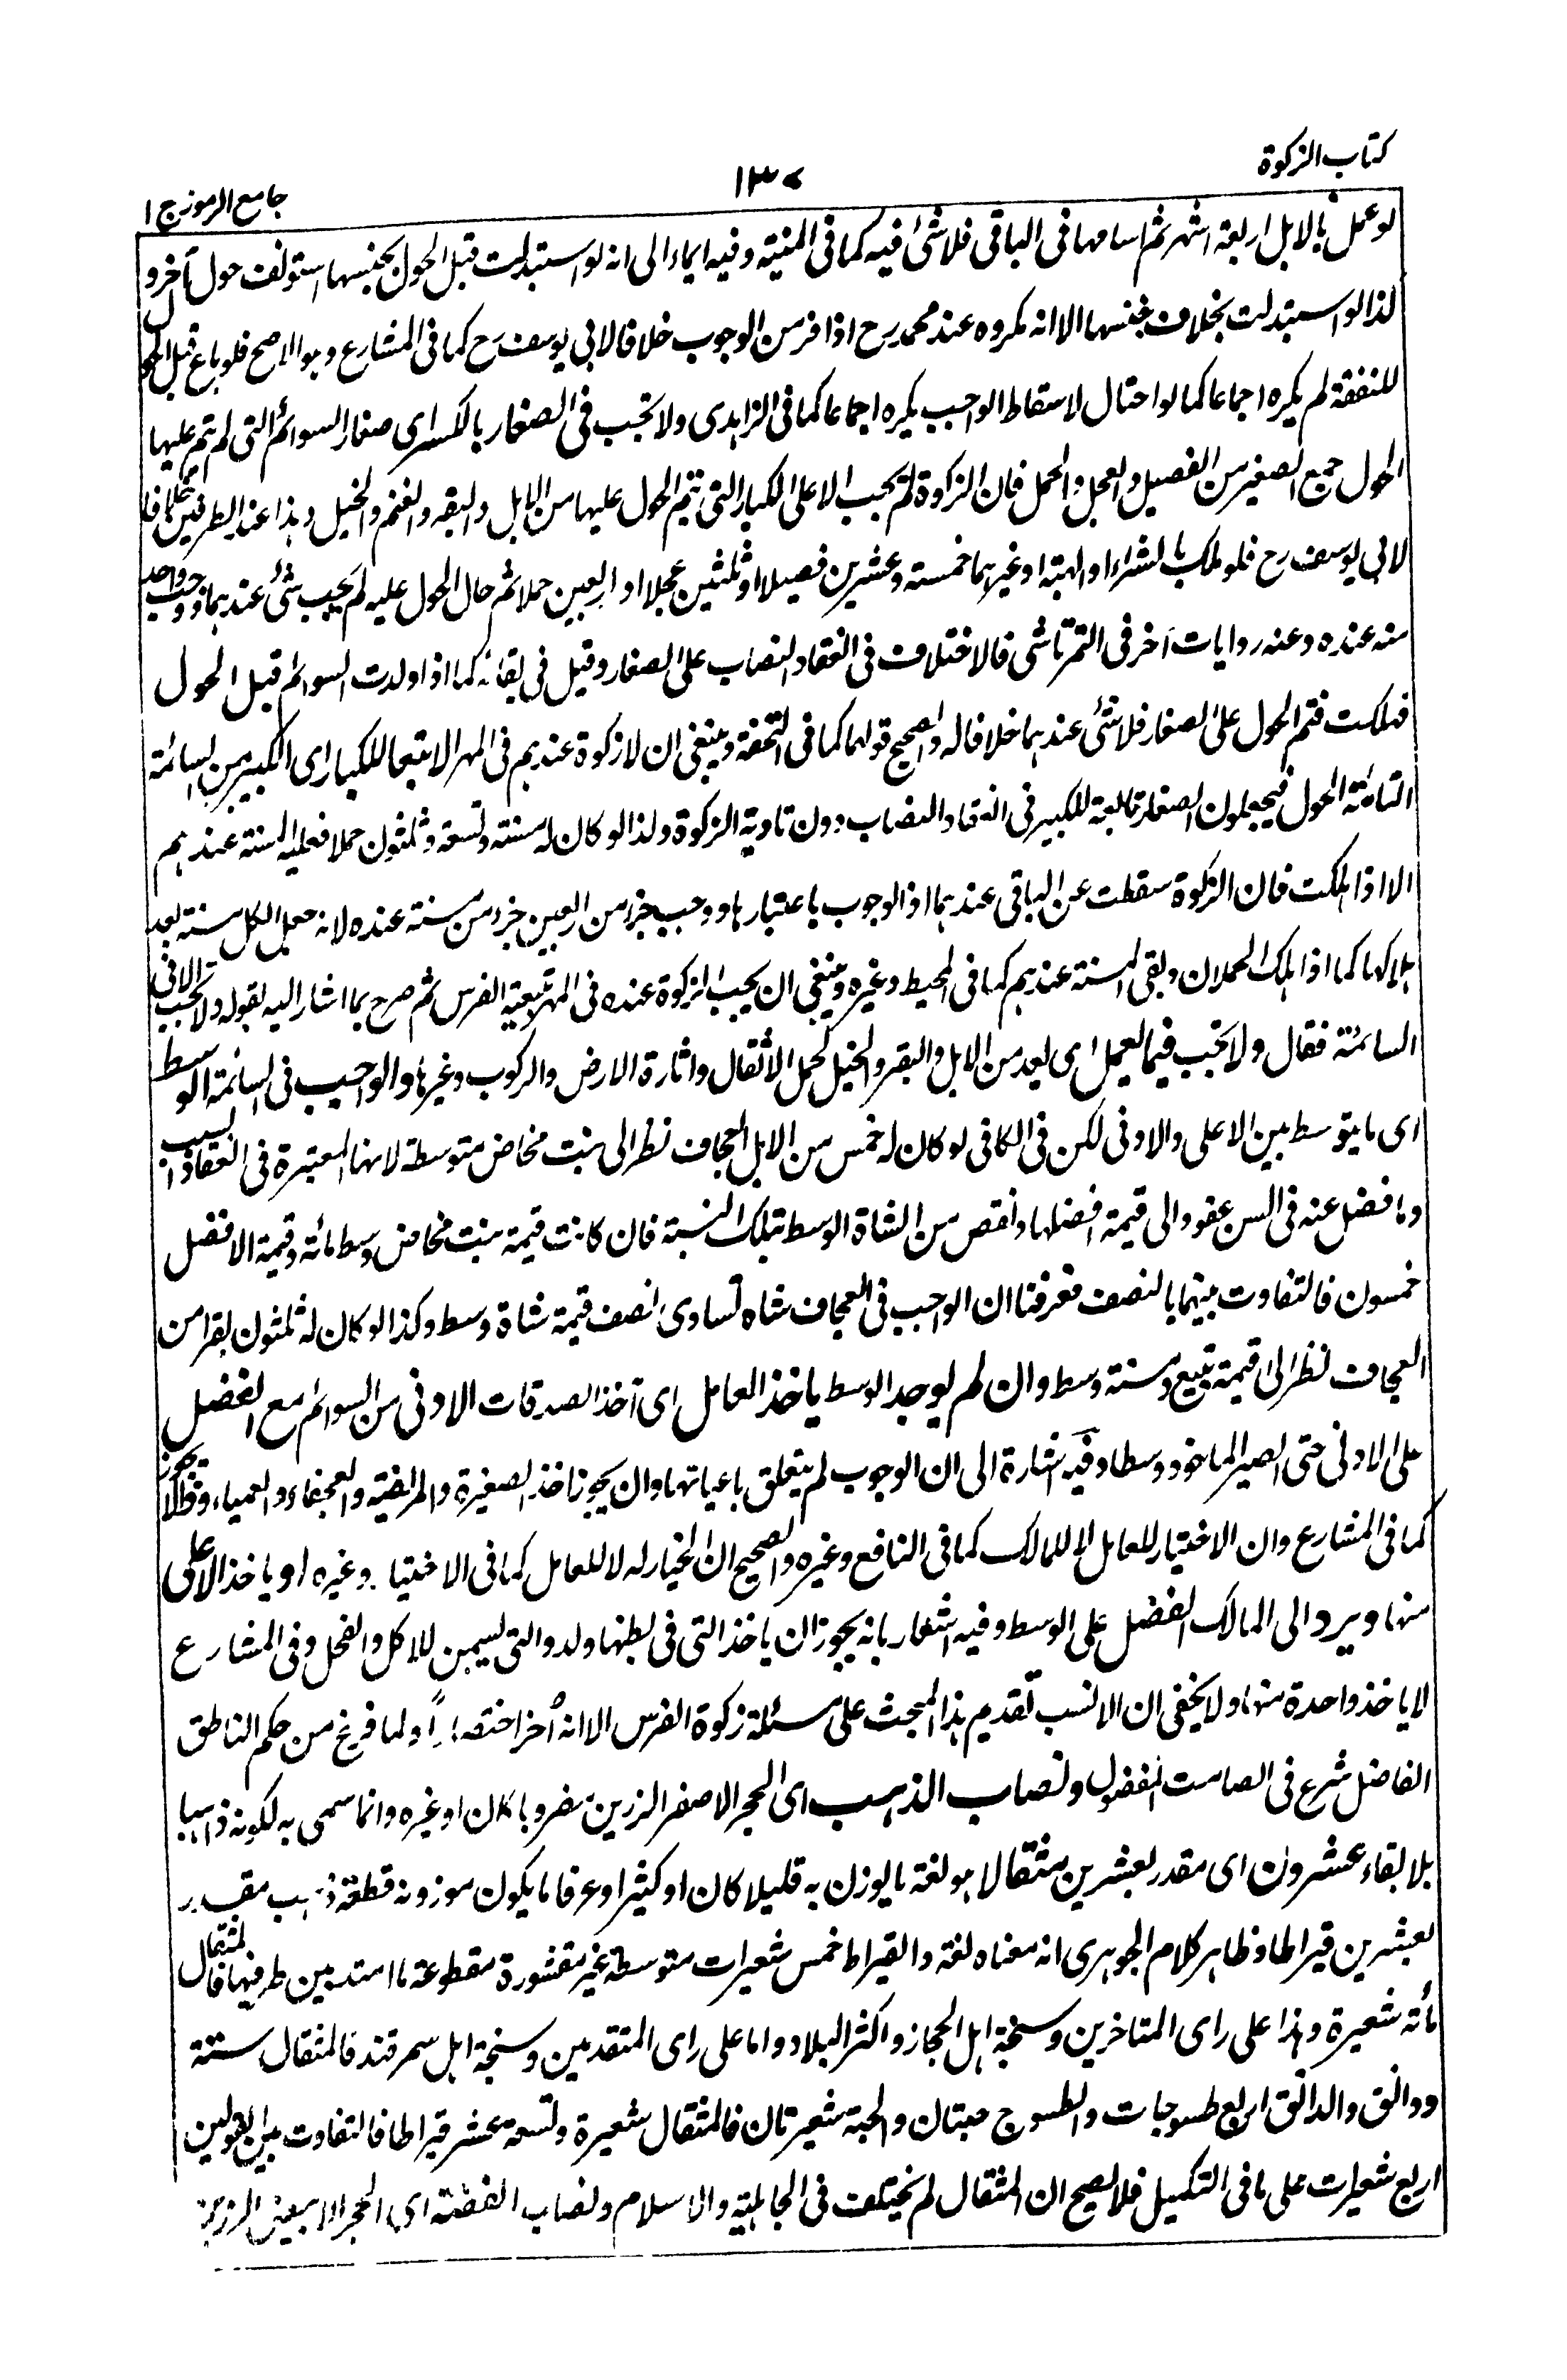 كتاب الزكوة
١٣٧
جامع الرموز ج ١
لو عمل بالابل اربعة اشهر ثم اسامها فى الباقى فلا شئ فيه كما فى المنية وفيه ايماء الى انه لو استبدلت قبل الحول بجنسها استونف حول آخر و
لذا لو استبدلت بخلاف جنسها الا انه مكروه عند محمد رح اذا فر من الوجوب خلافا لابى يوسف رح كما فى المشارع وهو الاصح فلو باع قبل الحول
للنفقة لم يكره اجماعا كما لو احتال لاسقاط الواجب يكره اجماعا كما فى الزاهدى ولا تجب فى الصغار بالكسر اى صغار السوائم التى لم تتم عليها
الحول جمع الصغير من الفصيل والعجل والحمل فان الزكوة لم تجب الا على الكبار التى تتم الحول عليها من الابل والبقر والغنم والخيل وهذا عند الطرفين خلافا
لابى يوسف رح فلو ملك بالشراء او الهبة او غيرهما خمسة وعشرين فصيلا او ثلثين عجلا او اربعين حملا ثم حال الحول عليه لم يجب شئ عندهما ووجب واحد
منه عنده وعنه روايات آخر فى التمرتاشى فالاختلاف فى انعقاد النصاب على الصغار وقيل فى بقائه كما اذا ولدت السوائم قبل الحول
فهلكت فتم الحول على الصغار فلا شئ عندهما خلافا له والصحيح قولهما كما فى التحفة وينبغى ان لا زكوة عندهم فى المهر الا تبعا للكبار اى الكبير من السائمة
التامة الحول فيجعلون الصغار تابعة للكبير فى انعقاد النصاب دون تادية الزكوة ولذا لو كان له مسنة وتسعة وثلثون حملا فعليه المسنة عندهم
الا اذا هلكت فان الزكوة سقطت عن الباقى عندهما اذ الوجوب باعتبارها ووجب جزء من اربعين جزء من مسنة عنده لانه جعل الكل مسنة بعد
هلاكها كما اذا هلك الحملان وبقى المسنة عندهم كما فى المحيط وغيره وينبغى ان يجب الزكوة عنده فى المهر تبعية الفرس ثم صرح بما اشار اليه بقوله ولا تجب الا فى
السائمة فقال ولا تجب فيما يعمل اى يعد من الابل والبقر والخيل لحمل الاثقال واثارة الارض والركوب وغيرها والواجب فى السائمة الوسط
اى ما يتوسط بين الاعلى والادنى لكن فى الكافى لو كان له خمس من الابل العجاف نظر الى بنت مخاض متوسطة لانها المعتبرة فى انعقاد السبب
وما فضل عنه فى السن عفو والى قيمة افضلها ونقص من الشاة الوسط بتلك النسبة فان كانت قيمة بنت مخاض وسط مائة وقيمة الافضل
خمسون فالتفاوت بينهما بالنصف فعرفنا ان الواجب فى العجاف شاه تساوى نصف قيمة شاة وسط وكذا لو كان له ثلثون بقرا من
العجاف نظر الى قيمة تبيع ومسنة وسط وان لم يوجد الوسط ياخذ العامل اى آخذ الصدقات الادنى من السوائم مع الفضل
على الادنى حتى يصير الماخوذ وسطا وفيه اشارة الى ان الوجوب لم يتعلق باعيانها وان يجوز اخذ الصغيرة والمريضة والعجفاء والعمياء وقيل لا يجوز
كما فى المشارع وان الاختيار للعامل لا للمالك كما فى النافع وغيره والصحيح ان الخيار له لا للعامل كما فى الاختيار وغيره او ياخذ الاعلى
منها ويرد الى المالك الفضل على الوسط وفيه اشعار بانه يجوز ان ياخذ التى فى بطنها ولد والتى تسمن للاكل والفحل وفى المشارع
لا ياخذ واحدة منها ولا يخفى ان الانسب تقديم هذا المبحث على مسئلة زكوة الفرس الا انه أخر اختصارا ولما فرغ من حكم الناطق
الفاضل شرع فى الصامت المفضول ونصاب الذهب اى الحجر الاصفر الرزين مضروبا كان او غيره وانما سمى به لكونه ذاهبا
بلا بقاء عشرون اى مقدر بعشرين مثقالا هو لغة ما يوزن به قليلا كان او كثيرا وعرفا ما يكون موزونه قطعة ذهب مقدر
بعشرين قيراطا وظاهر كلام الجوهرى انه معناه لغة والقيراط خمس شعيرات متوسطة غير مقشورة مقطوعة ما امتد من طرفيها فالمثقال
مأئة شعيرة وهذا على راى المتاخرين وسنجة اهل الحجاز واكثر البلاد واما على راى المتقدمين وسنجة اهل سمرقند فالمثقال ستة
ودوانق والدانق اربع طسوجات والطسوج حبتان والحبة شعيرتان فالمثقال شعيرة وتسعة عشر قيراطا فالتفاوت بين القولين
اربع شعيرات على ما فى التكميل فلا يصح ان المثقال لم يختلف فى الجاهلية والاسلام ونصاب الفضة اى الحجر الابيض الرزين